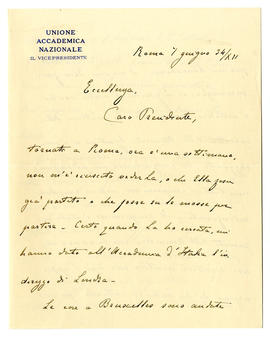 UNIONE
ACCADEMICA
NAZIONALE
IL VICEPRESIDENTE
Roma 7 giugno 34/XII
Eccellenza,
Caro Presidente,
tornato a Roma, ora è una settimana,
non m'è riuscito vederLa, o che Ella fosse
già partito o che fosse su le mosse per
partire. Certo quando La ho cercata, mi
hanno dato all'Accademia d'Italia l'in
dirizzo di Londra.
Le cose a Bruxelles sono andate